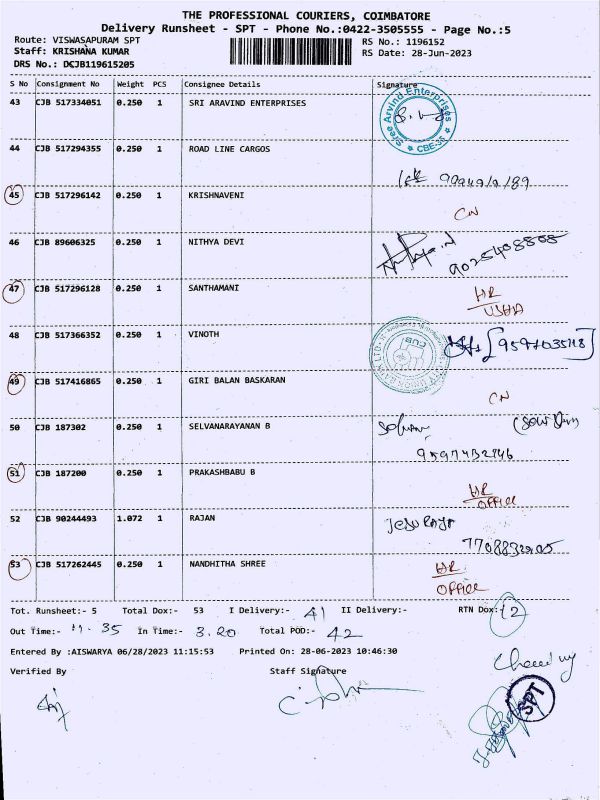 THE PROFESSIONAL COURIERS, COIMBATORE
Delivery Runsheet - SPT - Phone No.:0422-3505555 - Page No.:5
Route: VISWASAPURAM SPT
RS No.: 1196152
Staff: KRISHANA KUMAR
RS Date: 28-Jun-2023
DRS No.: DCJB119615205
S No Consignment No Weight PCS Consignee Details Signature
43 CJB 517334051 0.250 1 SRI ARAVIND ENTERPRISES
Sree Arvind Enterprises
★ CBE-35 ★
44 CJB 517294355 0.250 1 ROAD LINE CARGOS
45 CJB 517296142 0.250 1 KRISHNAVENI
CN
46 CJB 89606325 0.250 1 NITHYA DEVI
47 CJB 517296128 0.250 1 SANTHAMANI
HR
USHA
48 CJB 517366352 0.250 1 VINOTH
49 CJB 517416865 0.250 1 GIRI BALAN BASKARAN
CN
50 CJB 187302 0.250 1 SELVANARAYANAN B
51 CJB 187200 0.250 1 PRAKASHBABU B
HR
OFFICE
52 CJB 90244493 1.072 1 RAJAN
53 CJB 517262445 0.250 1 NANDHITHA SHREE
HR
OFFICE
Tot. Runsheet:- 5 Total Dox:- 53 I Delivery:- 41 II Delivery:- RTN Dox:- 12
Out Time:- 11.35 In Time:- 3.20 Total POD:- 42
Entered By :AISWARYA 06/28/2023 11:15:53 Printed On: 28-06-2023 10:46:30
Verified By Staff Signature
SPT